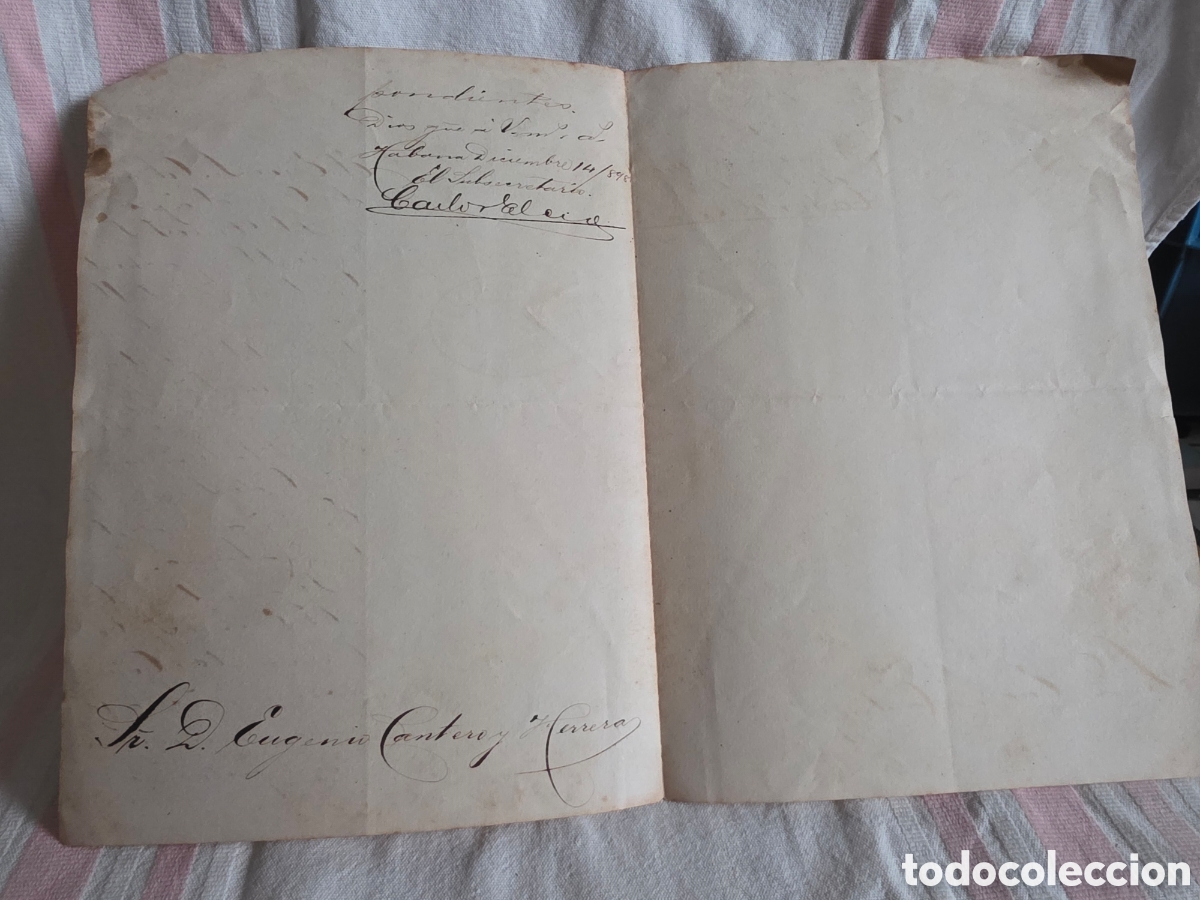 pondientes.
Dios gue á Vmd. 
Habana Diciembre 14/898
El Subsecretario.
Carlos
Sr. D. Eugenio Cantero y Herrera
todocoleccion